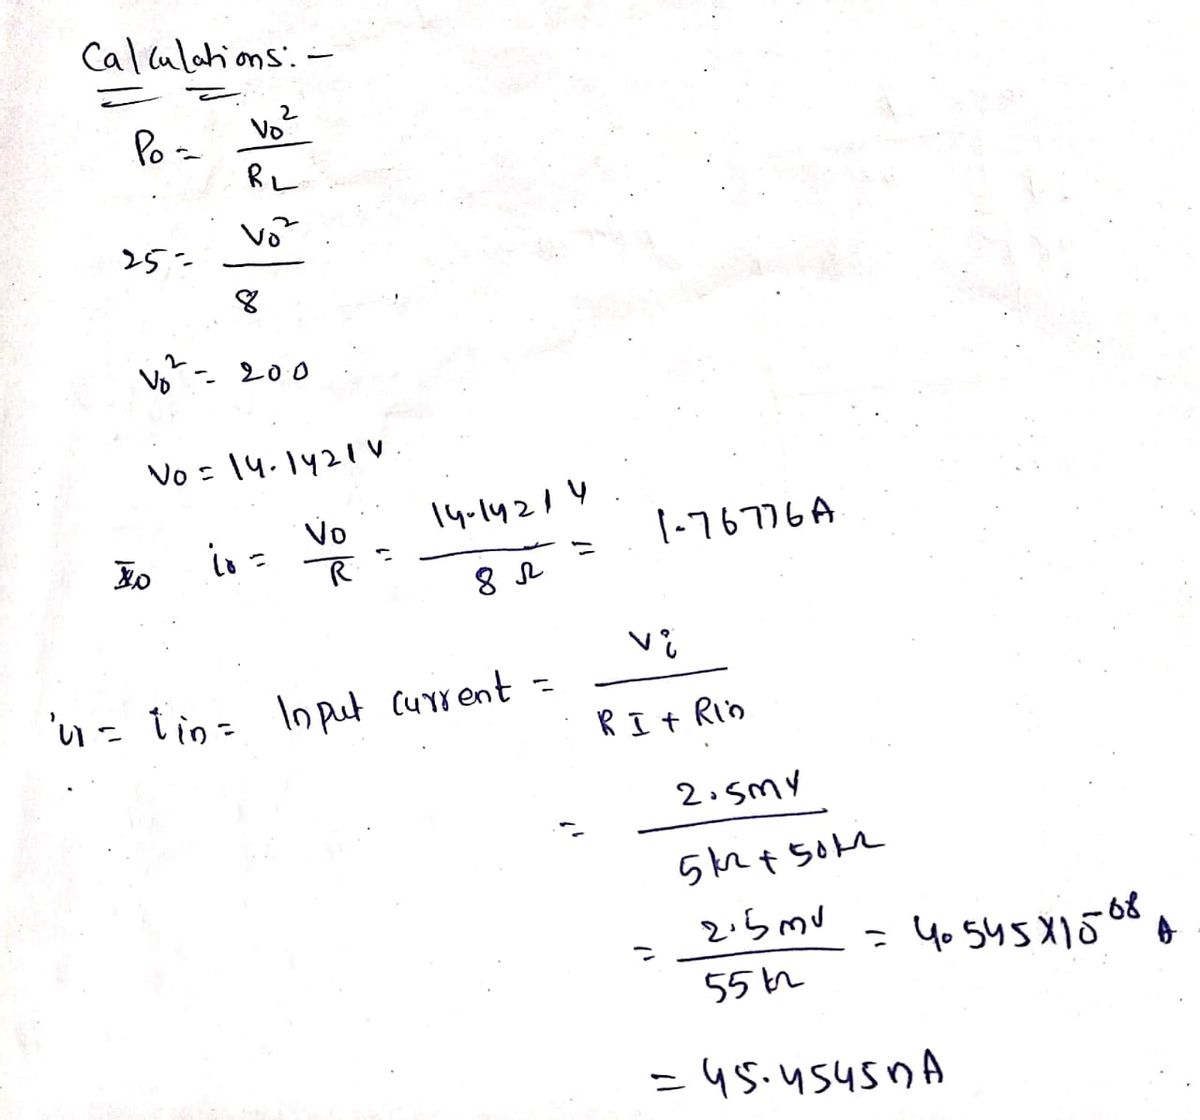 Calculations:-
Po = Vo² / RL
25 = Vo² / 8
Vo² = 200
Vo = 14.1421V.
io = Vo / R = 14.1421V / 8Ω = 1.76776A
= iin = Input current = Vi / RI + Rin
= 2.5mV / 5kΩ + 50kΩ
= 2.5mV / 55kΩ = 4.545X10^-08 A
= 45.4545nA